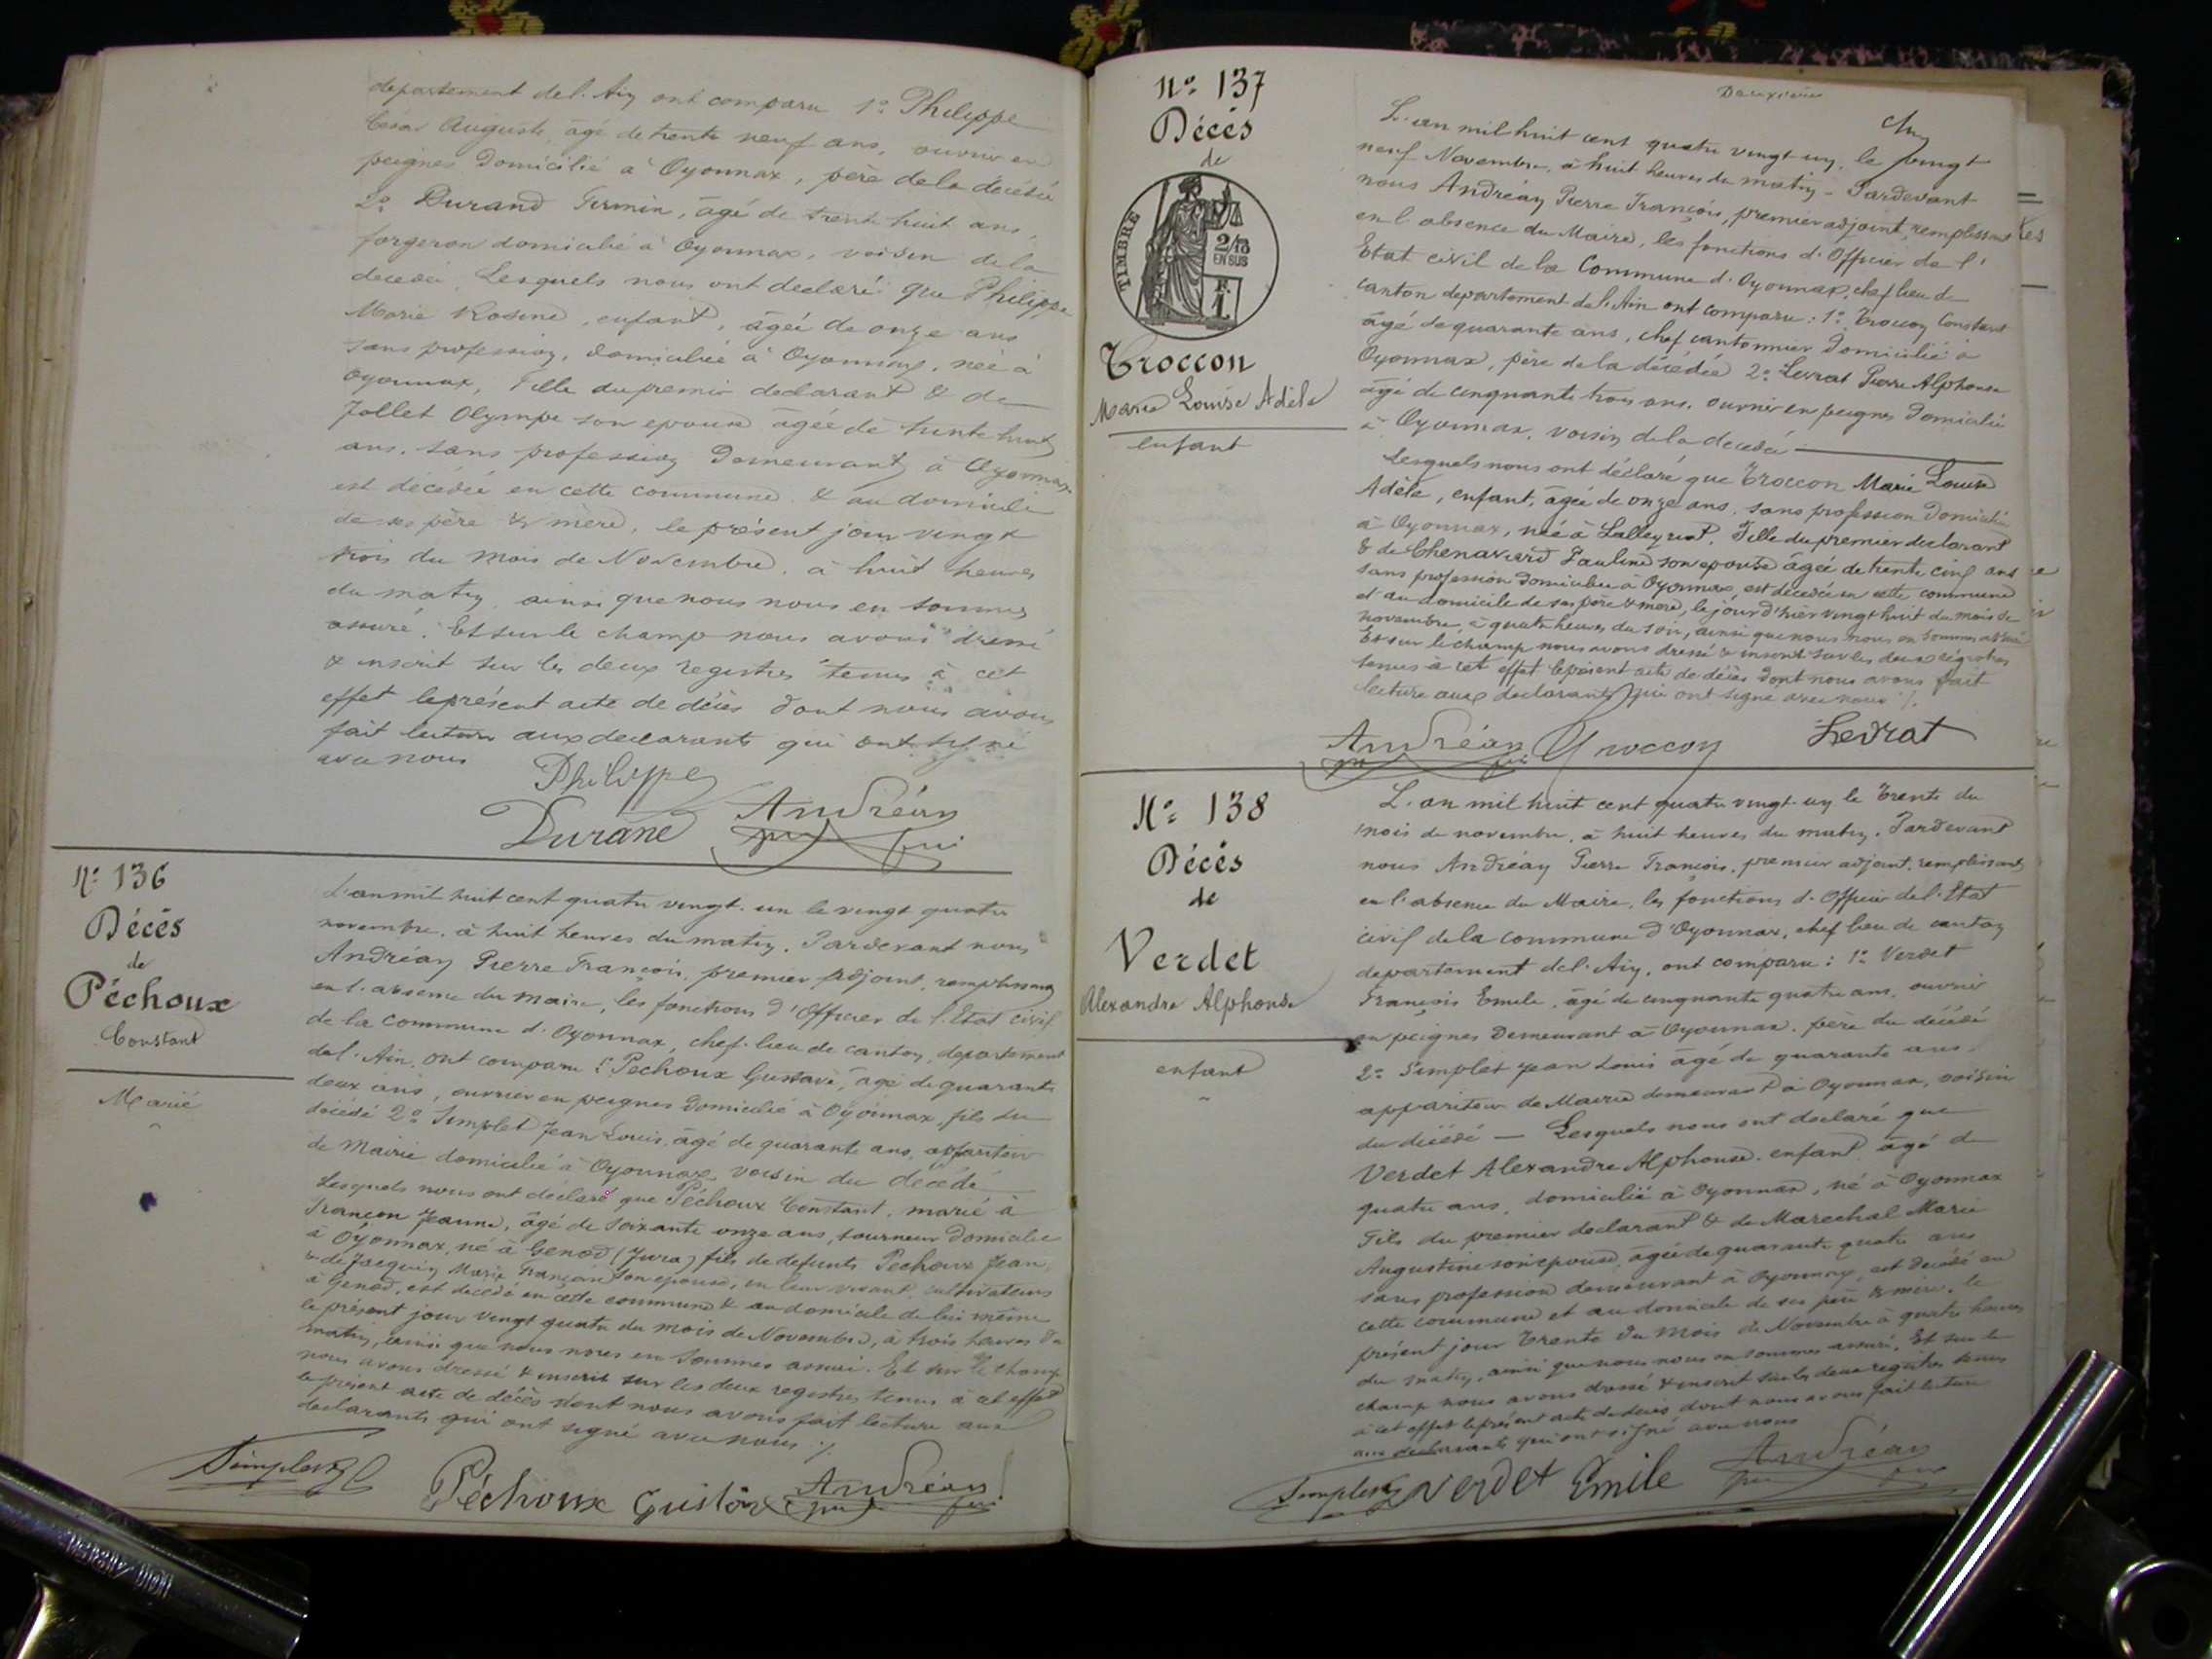 departement de l'Ain ont comparu 1º Philippe
César Auguste, âgé de trente neuf ans, ouvrier en
peignes domicilié à Oyonnax, père de la décédée
2º Durand Firmin, âgé de trente huit ans,
forgeron domicilié à Oyonnax, voisin de la
décédée. Lesquels nous ont declaré que Philippe
Marie Rosine, enfant, âgée de onze ans
sans profession, domiciliée à Oyonnax, née à
Oyonnax, Fille du premier declarant & de
Jollet Olympe son epouse âgée de trente huit
ans, sans profession Demeurant à Oyonnax
est décédée en cette commune & au domicile
de ses père & mère, le présent jour vingt
trois du mois de Novembre, à huit heures
du matin, ainsi que nous nous en sommes
assuré. Et sur le champ nous avons dressé
& inscrit sur les deux registres tenus à cet
effet le présent acte de décès dont nous avons
fait lecture aux declarants qui ont signé
avec nous
Philippe
Durand Andréan
Nº 136
Décès
de
Péchoux
Constant
Marié
L'an mil huit cent quatre vingt un le vingt quatre
novembre, à huit heures du matin. Pardevant nous
Andréan Pierre François, premier adjoint, remplissant
en l'absence du Maire, les fonctions d'Officier de l'Etat civil
de la Commune d'Oyonnax, chef-lieu de canton, departement
de l'Ain, ont comparu 1º Péchoux Gustave, âgé de quarante
deux ans, ouvrier en peignes domicilié à Oyonnax, fils du
décédé 2º Simplet Jean Louis, âgé de quarante ans, appariteur
de Mairie domicilié à Oyonnax, voisin du décédé
Lesquels nous ont déclaré que Péchoux Constant, marié à
Françon Jeanne, âgé de soixante onze ans, tourneur domicilié
à Oyonnax, né à Genod (Jura) fils de defunts Pechoux Jean,
& de Jacquin Marie Françoise son epouse, en leur vivant cultivateurs
à Genod, est decédé en cette commune & au domicile de lui même
le présent jour vingt quatre du mois de Novembre, à trois heures du
matin, ainsi que nous nous en sommes assuré. Et sur le champ
nous avons dressé & inscrit sur les deux registres tenus à cet effet
le présent acte de décès dont nous avons fait lecture aux
declarants qui ont signé avec nous ./.
Simplet Péchoux Gustave Andréan
Nº 137
Décès
de
TIMBRE
2/10
EN SUS
F.
1.
Troccon
Marie Louise Adèle
enfant
Deuxième
L'an mil huit cent quatre vingt un, le vingt
neuf Novembre, à huit heures du matin - Pardevant
nous Andréan Pierre François, premier adjoint, remplissant
en l'absence du Maire, les fonctions d'Officier de l'
Etat civil de la Commune d'Oyonnax, chef lieu de
canton departement de l'Ain ont comparu : 1º Troccon Constant
âgé de quarante ans, chef cantonnier domicilié à
Oyonnax, père de la décédée 2º Levrat Pierre Alphonse
âgé de cinquante trois ans, ouvrier en peignes domicilié
à Oyonnax, voisin de la decedée
Lesquels nous ont déclaré que Troccon Marie Louise
Adèle, enfant, âgée de onze ans, sans profession domiciliée
à Oyonnax, née à Lalleyriat. Fille du premier declarant
& de Chenavard Pauline son epouse âgée de trente cinq ans
sans profession domiciliée à Oyonnax, est décédée en cette commune
et au domicile de ses père & mère, le jour d'hier vingt huit du mois de
novembre, à quatre heures du soir, ainsi que nous nous en sommes assuré
Et sur le champ nous avons dressé & inscrit sur les deux régistres
tenus à cet effet le présent acte de décès dont nous avons fait
lecture aux declarants qui ont signé avec nous ./.
Andréan Troccon Levrat
Nº 138
Décès
de
Verdet
Alexandre Alphonse
enfant
L'an mil huit cent quatre vingt un le trente du
mois de novembre, à huit heures du matin. Pardevant
nous Andréan Pierre François, premier adjoint, remplissant
en l'absence du Maire, les fonctions d'Officier de l'Etat
civil de la commune d'Oyonnax, chef lieu de canton
departement de l'Ain, ont comparu : 1º Verdet
François Emile, âgé de cinquante quatre ans, ouvrier
en peignes Demeurant à Oyonnax, père du décédé
2º Simplet Jean Louis âgé de quarante ans,
appariteur de Mairie demeurant à Oyonnax, voisin
du décédé — Lesquels nous ont declaré que
Verdet Alexandre Alphonse, enfant âgé de
quatre ans, domicilié à Oyonnax, né à Oyonnax
Fils du premier declarant & de Marechal Marie
Augustine son epouse, âgée de quarante quatre ans
sans profession demeurant à Oyonnax, est décédé en
cette commune et au domicile de ses père & mère, le
présent jour trente du mois de Novembre à quatre heures
du matin, ainsi que nous nous en sommes assuré. Et sur le
champ nous avons dressé & inscrit sur les deux registres tenus
à cet effet le présent acte de deces dont nous avons fait lecture
aux declarants qui ont signé avec nous
Simplet Verdet Emile Andréan